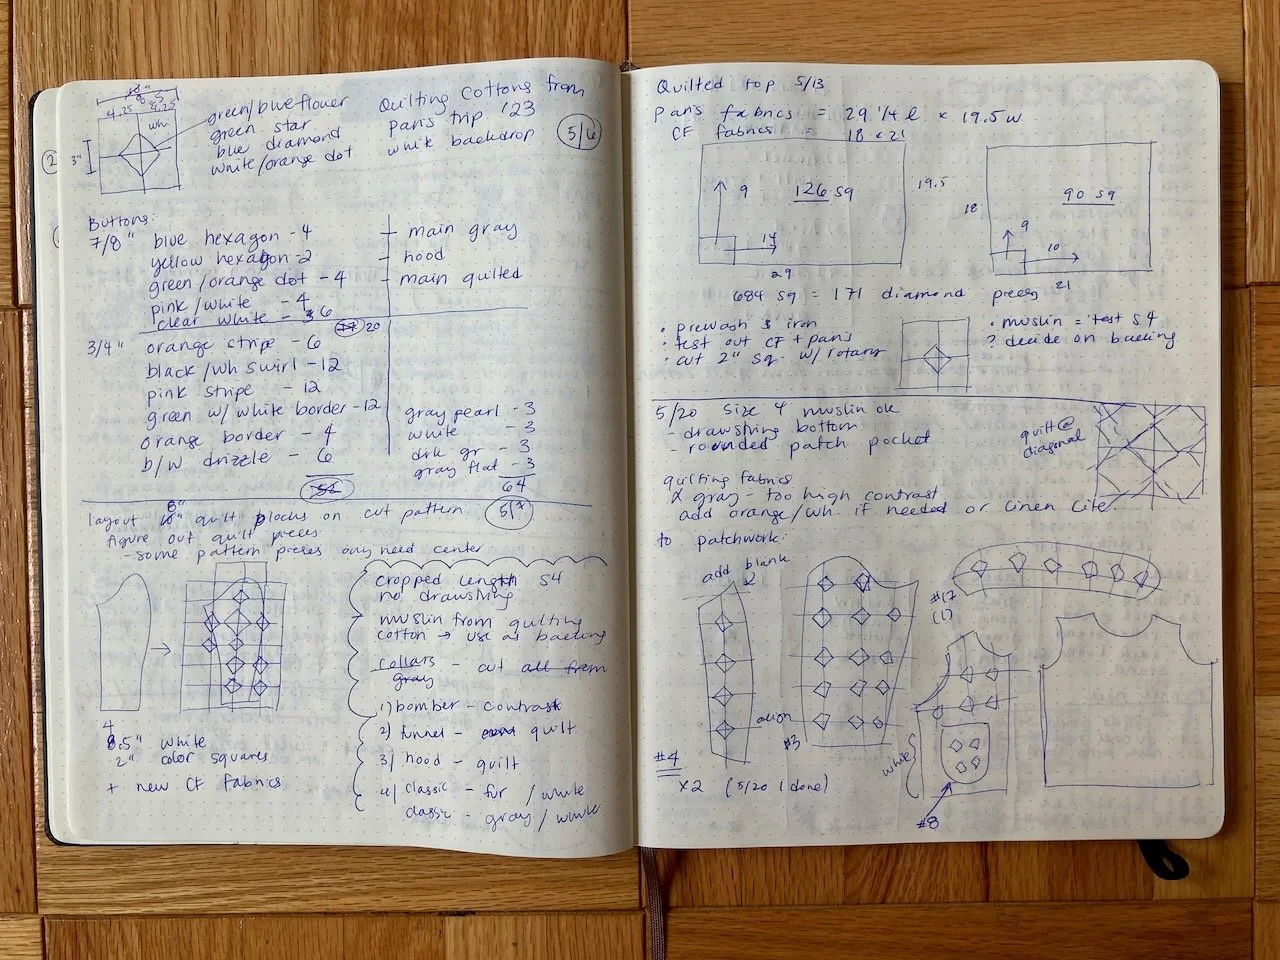 8"
4.25
4.25
wh.
3"
green/blue flower
green star
blue diamond
white/orange dot
Quilting Cottons from
Paris trip '23
white backdrop
5/6
Buttons:
7/8" blue hexagon - 4
yellow hexagon - 2
green/orange dot - 4
pink/white - 4
clear white - 6
20
main gray
hood
main quilted
3/4" orange stripe - 6
black/wh swirl - 12
pink stripe - 12
green w/ white border - 12
orange border - 4
b/w drizzle - 6
52
gray pearl - 3
white - 3
drk gr - 3
gray flat - 3
64
layout 8" quilt blocks on cut pattern
5/7
figure out quilt pieces
- some pattern pieces only need center
4
8.5" white
2" color squares
+ new CF fabrics
cropped length S4
no drawstring
muslin from quilting
cotton → use as backing
collars - cut all from
gray
1) bomber - contrast
2) funnel - quilt
3) hood - quilt
4) classic - fur / white
classic - gray / white
Quilted top 5/13
Paris fabrics = 29 1/4 l × 19.5 w
CF fabrics = 18 × 21
9
126 sq
14
29
19.5
18
90 sq
9
10
21
684 sq = 171 diamond pieces
• prewash & iron
• test out CF + paris
• cut 2" sq. w/ rotary
• muslin = test S4
? decide on backing
5/20 Size 4 muslin ok
- drawstring bottom
- rounded patch pocket
quilt @
diagonal
quilting fabrics
X gray - too high contrast
add orange/wh. if needed or linen lite.
to patchwork:
add blank
align
#4
×2 (5/20 1 done)
#3
#17
(1)
white
#8